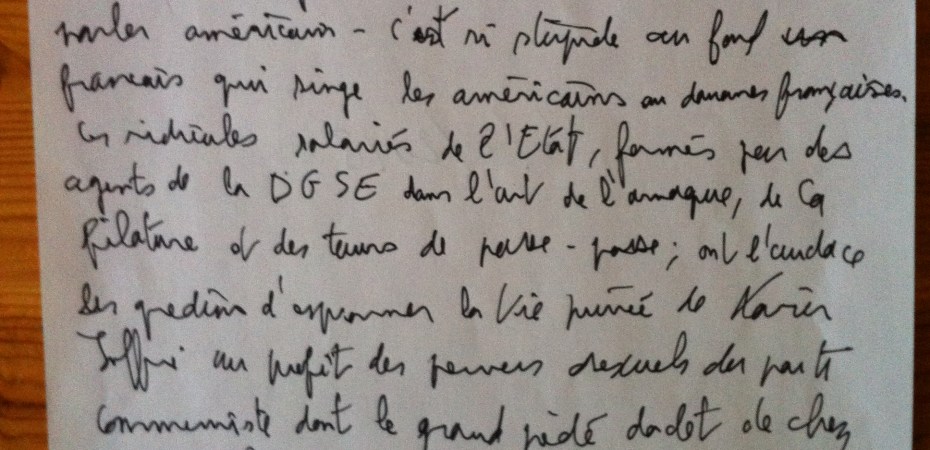 parler américain - c'est si stupide au fond un
français qui singe les américains au douanes françaises.
Ces ridicules salariés de l'Etat, formés par des
agents de la DGSE dans l'art de l'arnaque, de la
filature et des tours de passe - passe ; ont l'audace
les gredins d'espionner la vie privée de
au profit des pervers sexuels du parti
communiste dont le grand pédé dadet de chez